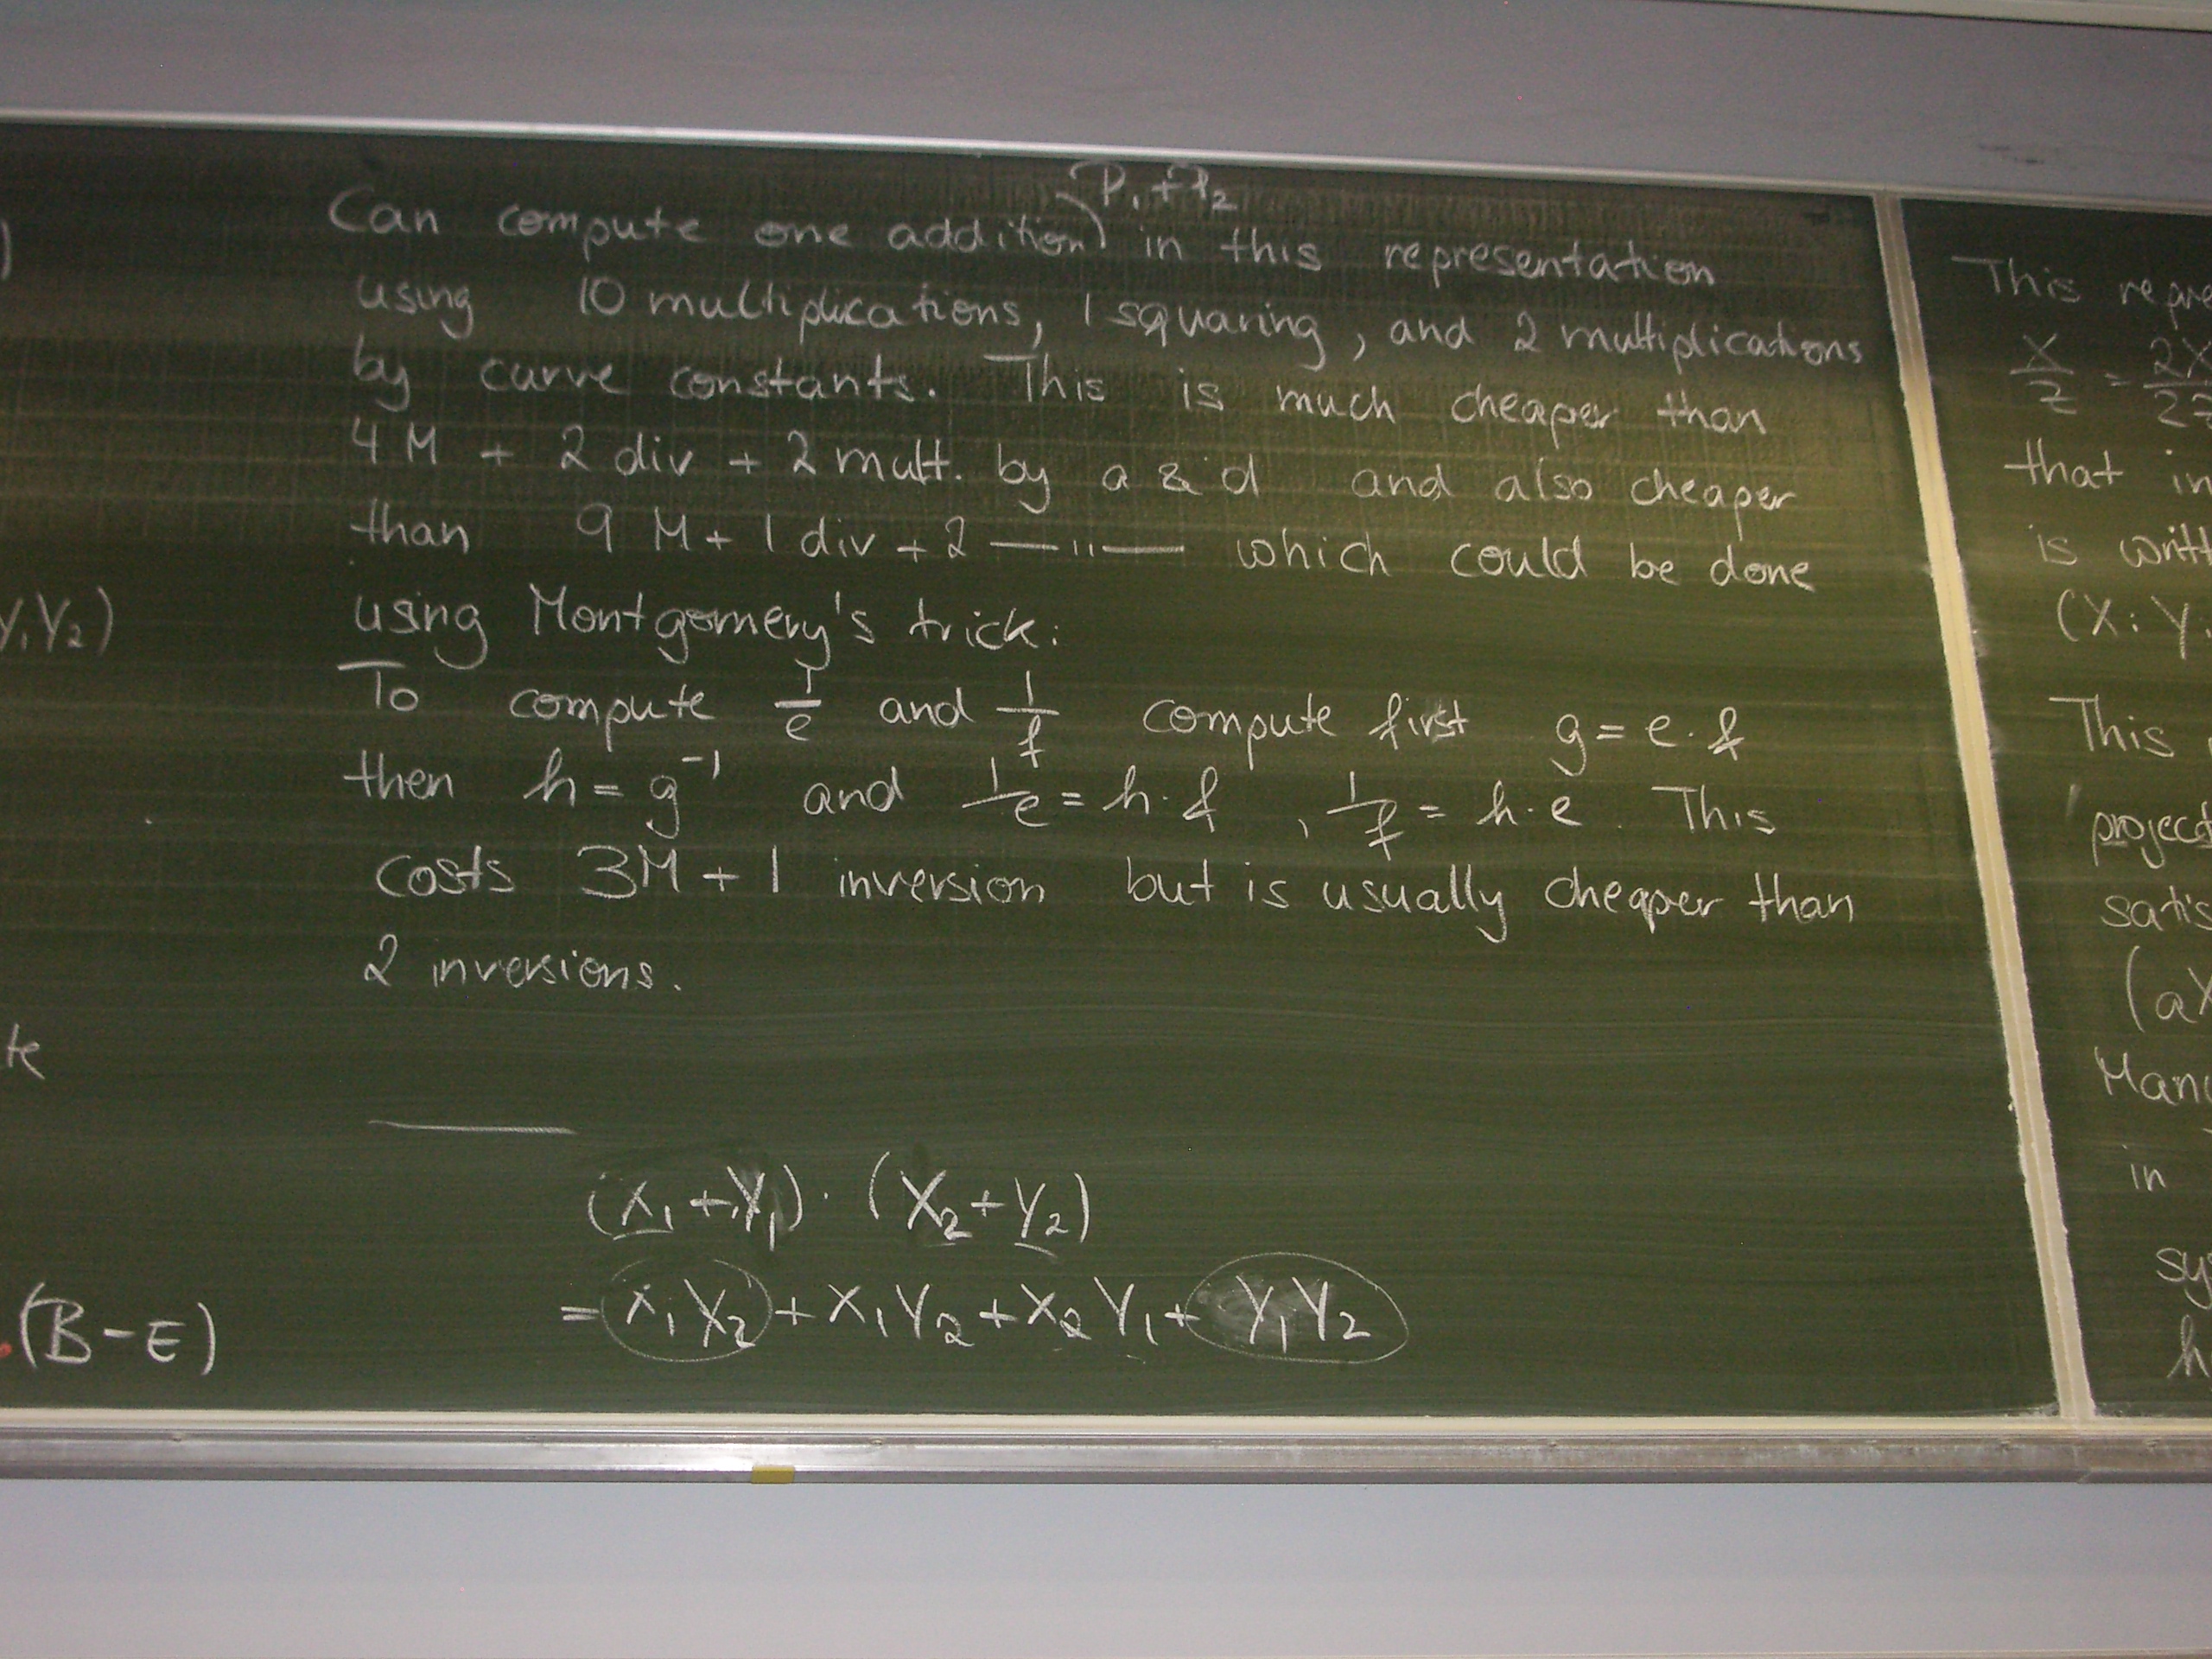 )
Y₁Y₂)
te
·(B-E)
P₁+P₂
Can compute one addition) in this representation
using 10 multiplications, 1 squaring, and 2 multiplications
by curve constants. This is much cheaper than
4 M + 2 div + 2 mult. by a & d and also cheaper
than 9 M + 1 div + 2 —"— which could be done
using Montgomery's trick:
To compute 1/e and 1/f compute first g = e·f
then h = g⁻¹ and 1/e = h·f , 1/f = h·e. This
costs 3M + 1 inversion but is usually cheaper than
2 inversions.
(X₁+Y₁)·(X₂+Y₂)
= X₁X₂ + X₁Y₂ + X₂Y₁ + Y₁Y₂
This repre
X/Z = 2X/2Z
that in
is writt
(X:Y:
This
project
satis
(aX
Man
in
sys
h